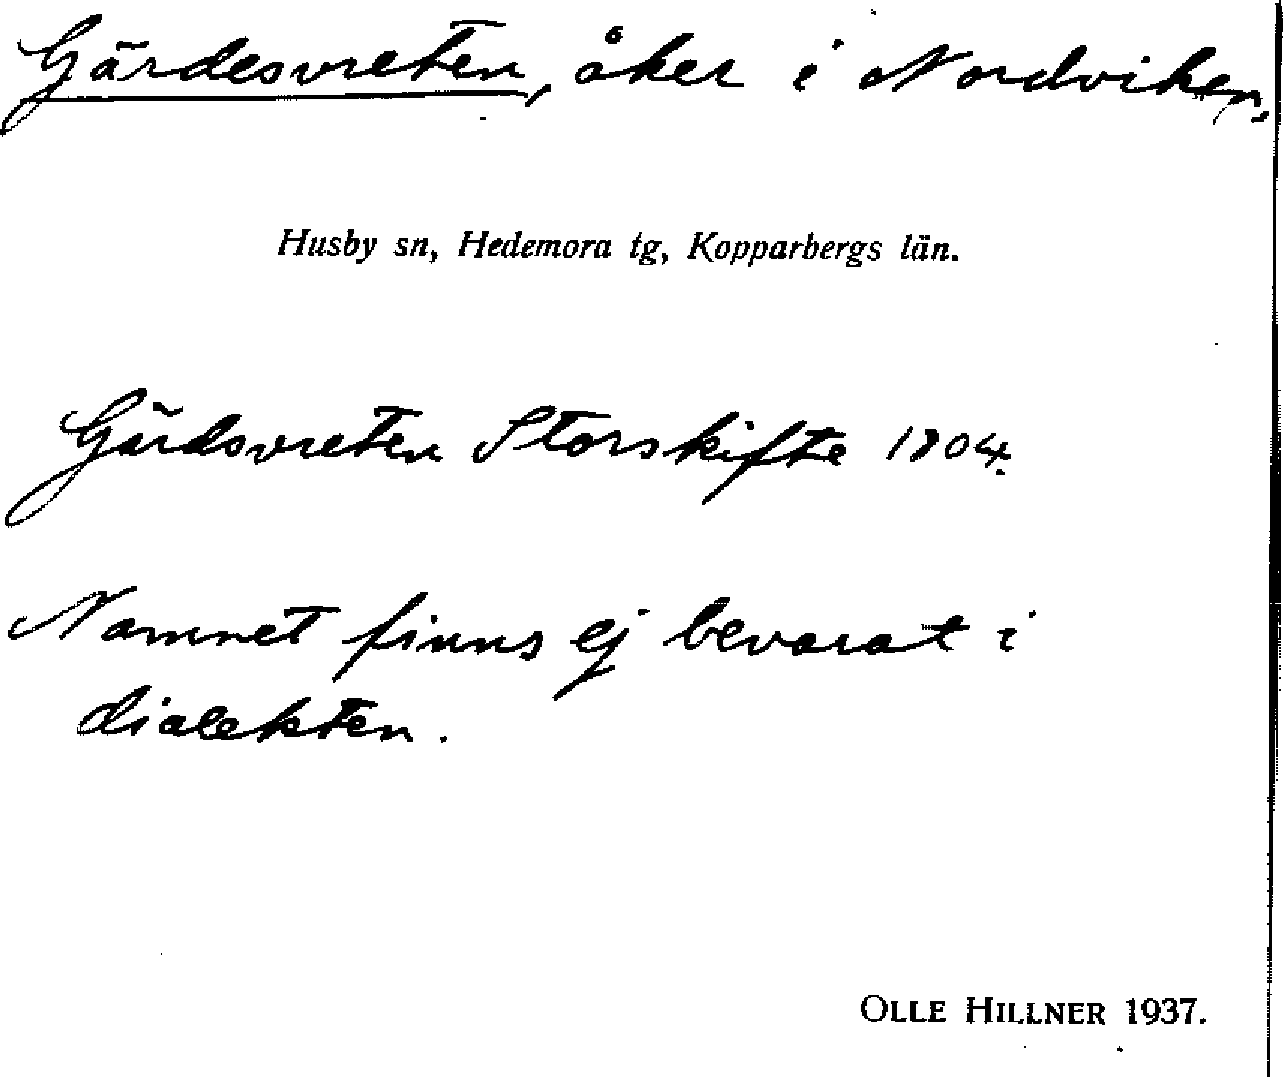 Gärdesvreten, åker i Nordviken.
Husby sn, Hedemora tg, Kopparbergs län.
Gärdsvreten Storskifte 1804.
Namnet finns ej bevarat i
dialekten.
OLLE HILLNER 1937.